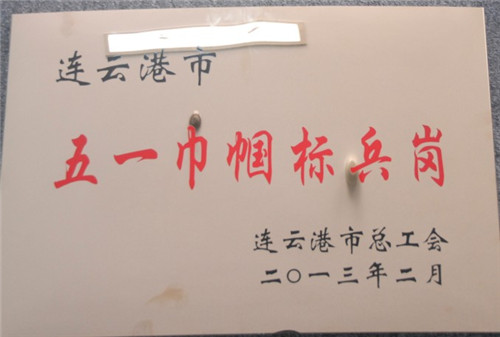 连云港市
五一巾帼标兵岗
连云港市总工会
二〇一三年二月